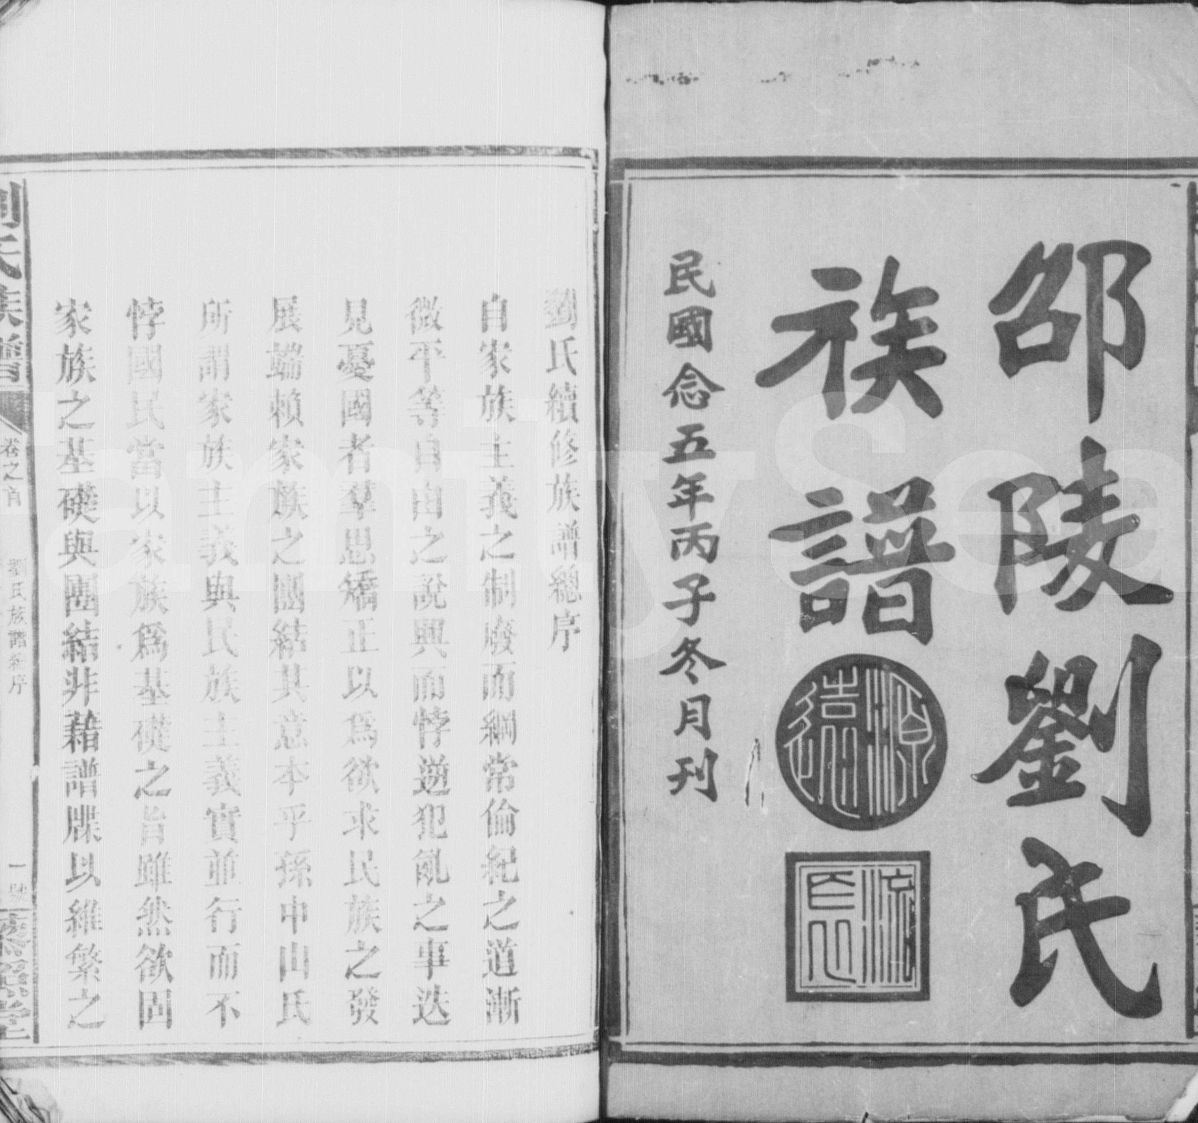 邵陵劉氏
族譜
源遠
流長
民國念五年丙子冬月刊
劉氏續修族譜總序
自家族主義之制廢而綱常倫紀之道漸
微平等自由之說興而悖逆犯亂之事迭
見憂國者羣思矯正以爲欲求民族之發
展端賴家族之團結其意本乎孫中山氏
所謂家族主義與民族主義實並行而不
悖國民當以家族爲基礎之旨雖然欲固
家族之基礎與團結非藉譜牒以維繫之
劉氏族譜
卷之首
劉氏族譜總序
一